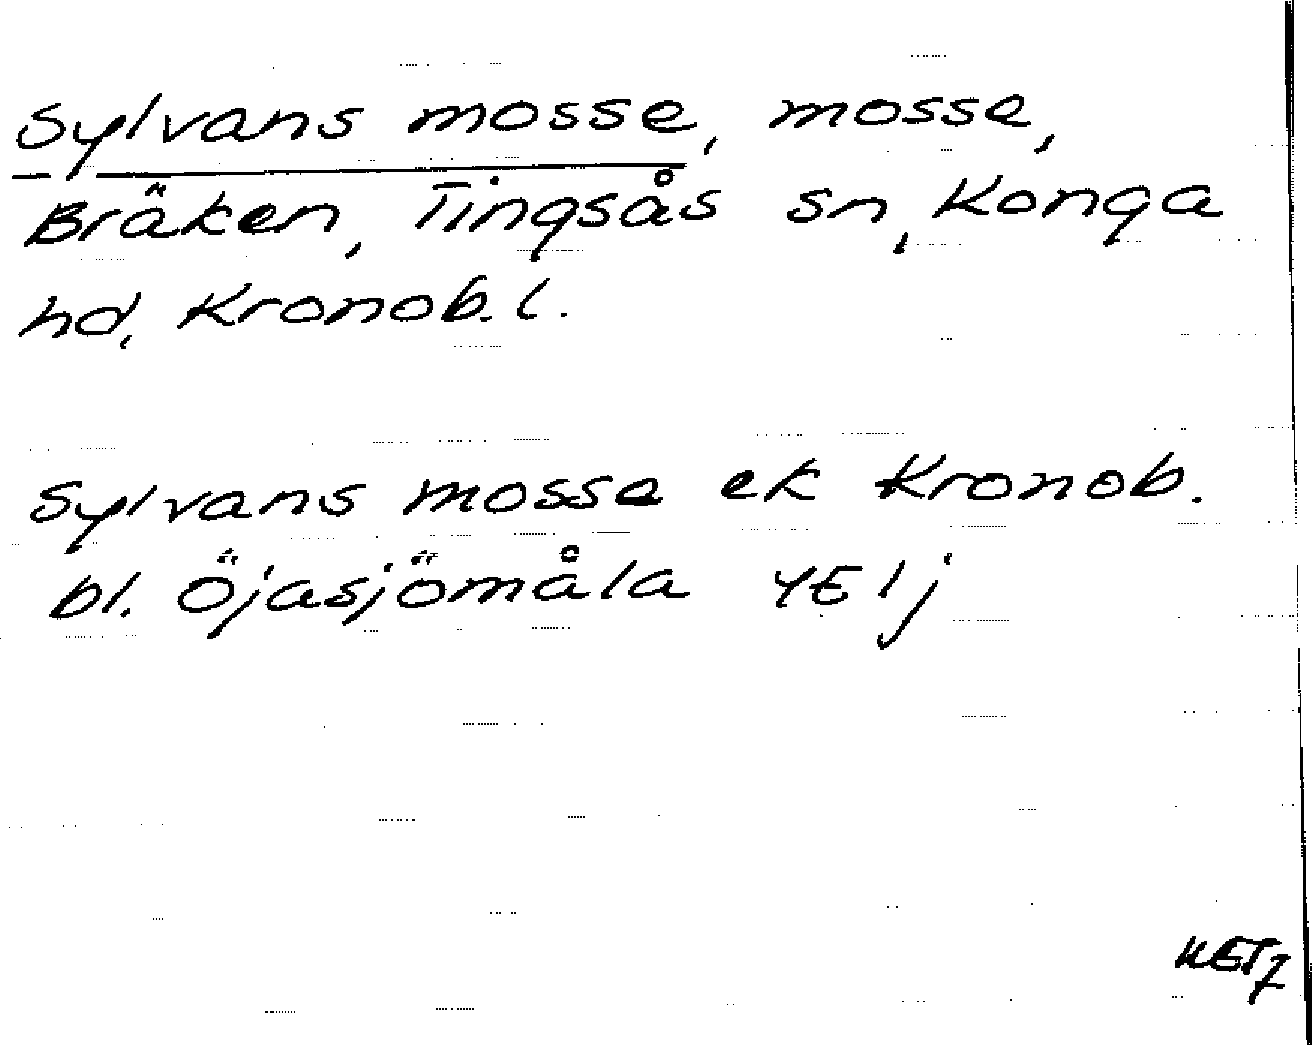 Sylvans mosse, mosse,
Bräken, Tingsås sn, Konga
hd, Kronob. l.
Sylvans mosse ek Kronob.
bl. Öjasjömåla 4E lj